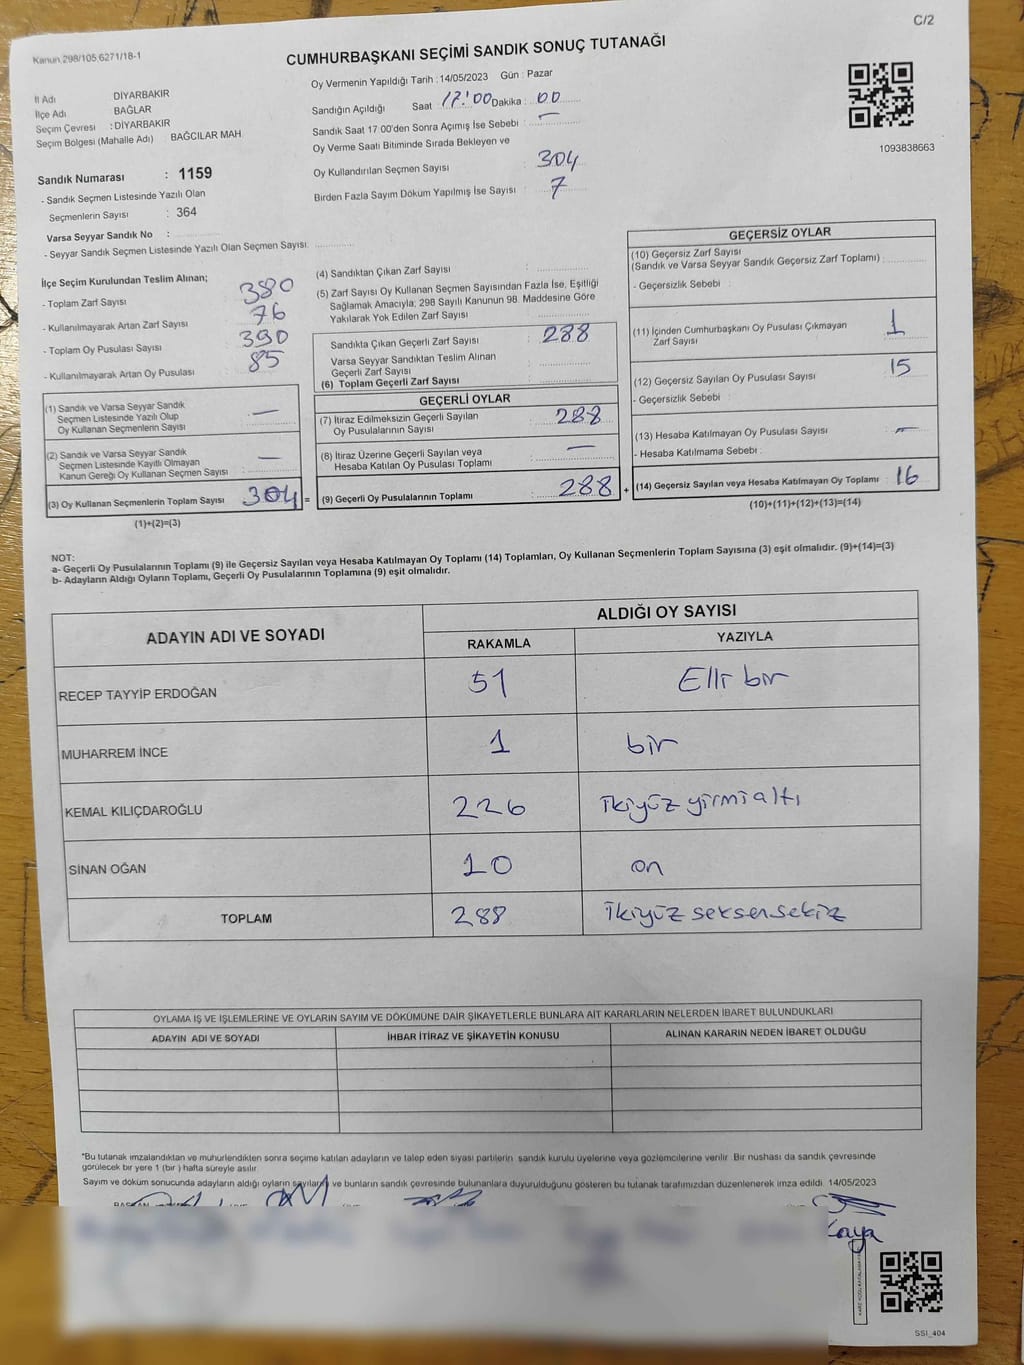 C/2
Kanun 298/105,6271/18-1
CUMHURBAŞKANI SEÇİMİ SANDIK SONUÇ TUTANAĞI
İl Adı DİYARBAKIR
İlçe Adı BAĞLAR
Seçim Çevresi : DİYARBAKIR
Seçim Bölgesi (Mahalle Adı) BAĞCILAR MAH.
Sandık Numarası : 1159
- Sandık Seçmen Listesinde Yazılı Olan
Seçmenlerin Sayısı : 364
Varsa Seyyar Sandık No :
- Seyyar Sandık Seçmen Listesinde Yazılı Olan Seçmen Sayısı:
Oy Vermenin Yapıldığı Tarih : 14/05/2023 Gün : Pazar
Sandığın Açıldığı Saat 17:00 Dakika : 00
Sandık Saat 17 00'den Sonra Açımış İse Sebebi : —
Oy Verme Saati Bitiminde Sırada Bekleyen ve
Oy Kullandırılan Seçmen Sayısı 304
Birden Fazla Sayım Döküm Yapılmış İse Sayısı : 7
1093838663
İlçe Seçim Kurulundan Teslim Alınan;
- Toplam Zarf Sayısı 380
- Kullanılmayarak Artan Zarf Sayısı 76
- Toplam Oy Pusulası Sayısı 390
- Kullanılmayarak Artan Oy Pusulası 85
(1) Sandık ve Varsa Seyyar Sandık
Seçmen Listesinde Yazılı Olup
Oy Kullanan Seçmenlerin Sayısı —
(2) Sandık ve Varsa Seyyar Sandık
Seçmen Listesinde Kayıtlı Olmayan
Kanun Gereği Oy Kullanan Seçmen Sayısı : —
(3) Oy Kullanan Seçmenlerin Toplam Sayısı 304 =
(1)+(2)=(3)
(4) Sandıktan Çıkan Zarf Sayısı :
(5) Zarf Sayısı Oy Kullanan Seçmen Sayısından Fazla İse, Eşitliği
Sağlamak Amacıyla; 298 Sayılı Kanunun 98. Maddesine Göre
Yakılarak Yok Edilen Zarf Sayısı :
Sandıkta Çıkan Geçerli Zarf Sayısı : 288
Varsa Seyyar Sandıktan Teslim Alınan
Geçerli Zarf Sayısı :
(6) Toplam Geçerli Zarf Sayısı
GEÇERLİ OYLAR
(7) İtiraz Edilmeksizin Geçerli Sayılan
Oy Pusulalarının Sayısı : 288
(8) İtiraz Üzerine Geçerli Sayılan veya
Hesaba Katılan Oy Pusulası Toplamı : —
(9) Geçerli Oy Pusulalarının Toplamı : 288 +
GEÇERSİZ OYLAR
(10) Geçersiz Zarf Sayısı
(Sandık ve Varsa Seyyar Sandık Geçersiz Zarf Toplamı) :
- Geçersizlik Sebebi :
(11) İçinden Cumhurbaşkanı Oy Pusulası Çıkmayan
Zarf Sayısı : 1
(12) Geçersiz Sayılan Oy Pusulası Sayısı : 15
- Geçersizlik Sebebi :
(13) Hesaba Katılmayan Oy Pusulası Sayısı : —
- Hesaba Katılmama Sebebi :
(14) Geçersiz Sayılan veya Hesaba Katılmayan Oy Toplamı : 16
(10)+(11)+(12)+(13)=(14)
NOT:
a- Geçerli Oy Pusulalarının Toplamı (9) ile Geçersiz Sayılan veya Hesaba Katılmayan Oy Toplamı (14) Toplamları, Oy Kullanan Seçmenlerin Toplam Sayısına (3) eşit olmalıdır. (9)+(14)=(3)
b- Adayların Aldığı Oyların Toplamı, Geçerli Oy Pusulalarının Toplamına (9) eşit olmalıdır.
ADAYIN ADI VE SOYADI ALDIĞI OY SAYISI
RAKAMLA YAZIYLA
RECEP TAYYİP ERDOĞAN 51 Elli bir
MUHARREM İNCE 1 bir
KEMAL KILIÇDAROĞLU 226 ikiyüz yirmi altı
SİNAN OĞAN 10 on
TOPLAM 288 İkiyüz seksensekiz
OYLAMA İŞ VE İŞLEMLERİNE VE OYLARIN SAYIM VE DÖKÜMÜNE DAİR ŞİKAYETLERLE BUNLARA AİT KARARLARIN NELERDEN İBARET BULUNDUKLARI
ADAYIN ADI VE SOYADI İHBAR İTİRAZ VE ŞİKAYETİN KONUSU ALINAN KARARIN NEDEN İBARET OLDUĞU
*Bu tutanak imzalandıktan ve mühürlendikten sonra seçime katılan adayların ve talep eden siyasi partilerin sandık kurulu üyelerine veya gözlemcilerine verilir. Bir nüshası da sandık çevresinde
görülecek bir yere 1 (bir ) hafta süreyle asılır.
Sayım ve döküm sonucunda adayların aldığı oyların sayıları ve bunların sandık çevresinde bulunanlara duyurulduğunu gösteren bu tutanak tarafımızdan düzenlenerek imza edildi. 14/05/2023
BAŞKAN
Kaya
SSI_404